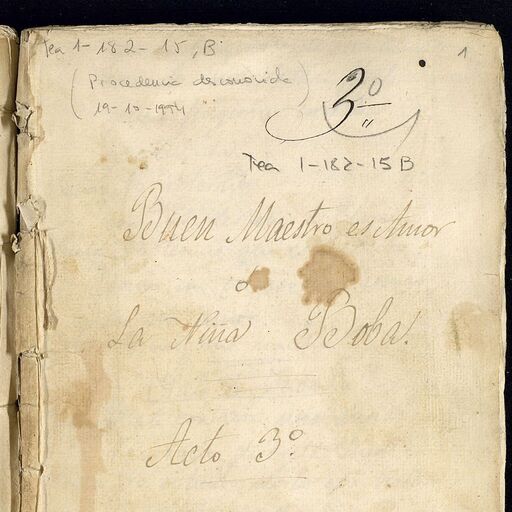 Tea 1-182-15, B
1
(Procedencia desconocida
19-10-1994)
3º
"
Tea 1-182-15 B
Buen Maestro es Amor
o
La Niña Boba.
Acto 3º